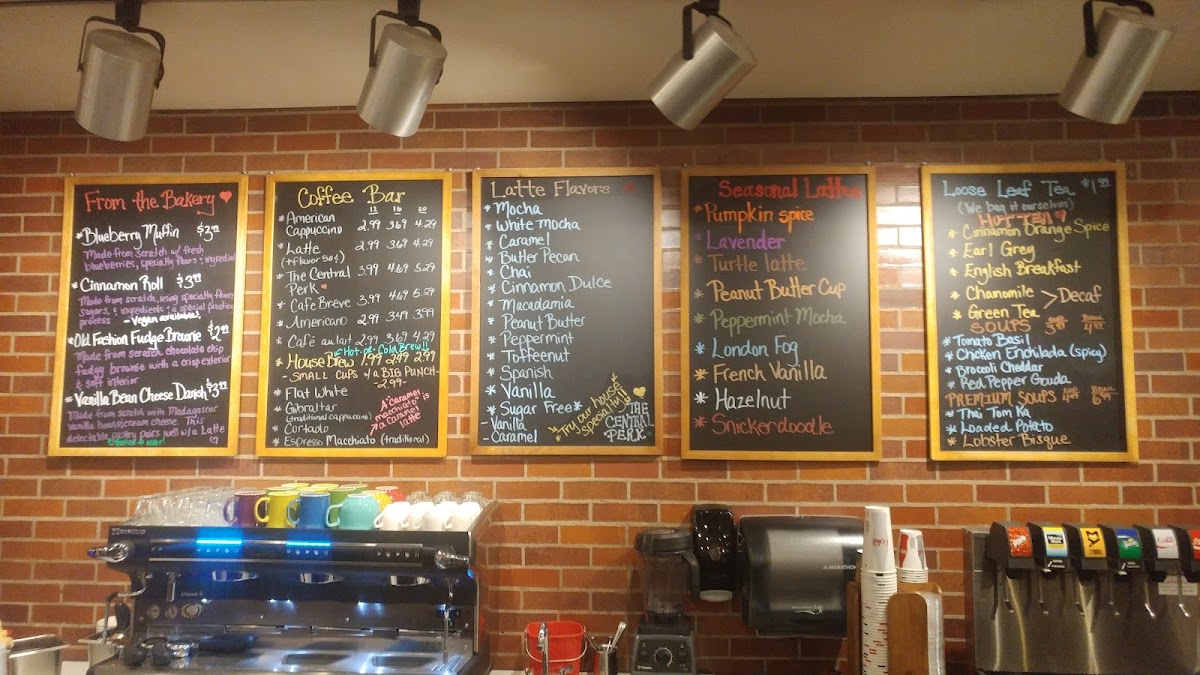 From the Bakery
*Blueberry Muffin
Made from scratch w/ fresh
blueberries, specialty flours + ingredients
*Cinnamon Roll
Made from scratch, using specialty flours,
sugars, & ingredients + a special proofing
process - Vegan available!
*Old Fashion Fudge Brownie
Made from scratch chocolate chip
fudgy brownie with a crisp exterior
& soft interior
*Vanilla Bean Cheese Danish
Made from scratch with Madagascar
Vanilla bean/cream cheese. This
delectable pastry pairs well w/ a Latte
Coffee Bar
12 16 20
*American
Cappuccino 2.99 3.69 4.29
*Latte 2.99 3.69 4.29
(+flavor 50¢)
*The Central 3.99 4.69 5.29
Perk
*Cafe Breve 3.99 4.69 5.29
*Americano 2.99 3.49 3.99
*Café aulait 2.99 3.69 4.29
Hot or Cold Brew!!
*House Brew 1.99 2.49 2.99
-SMALL CUPS w/ a BIG PUNCH-
-2.99-
*Flat White
*Gibraltar
(traditional cappuccino)
*Cortado
*Espresso Macchiato (traditional)
A "caramel
macchiato" is
a Caramel
latte
Latte Flavors
*Mocha
*White Mocha
*Caramel
*Butter Pecan
*Chai
*Cinnamon Dulce
*Macadamia
*Peanut Butter
*Peppermint
*Toffeenut
*Spanish
*Vanilla
*Sugar Free*
-Vanilla
-Caramel
*Try our house
specialty!!
THE
CENTRAL
PERK
Seasonal Lattes
*Pumpkin spice
*Lavender
*Turtle latte
*Peanut Butter Cup
*Peppermint Mocha
*London Fog
*French Vanilla
*Hazelnut
*Snickerdoodle
Loose Leaf Tea $1.99
(We bag it ourselves)
HOT TEA
*Cinnamon Orange Spice
*Earl Grey
*English Breakfast
*Chamomile
*Green Tea
>Decaf
SOUPS
*Tomato Basil
*Chicken Enchilada (spicy)
*Broccoli Cheddar
*Red Pepper Gouda
PREMIUM SOUPS
*Thai Tom Ka
*Loaded Potato
*Lobster Bisque